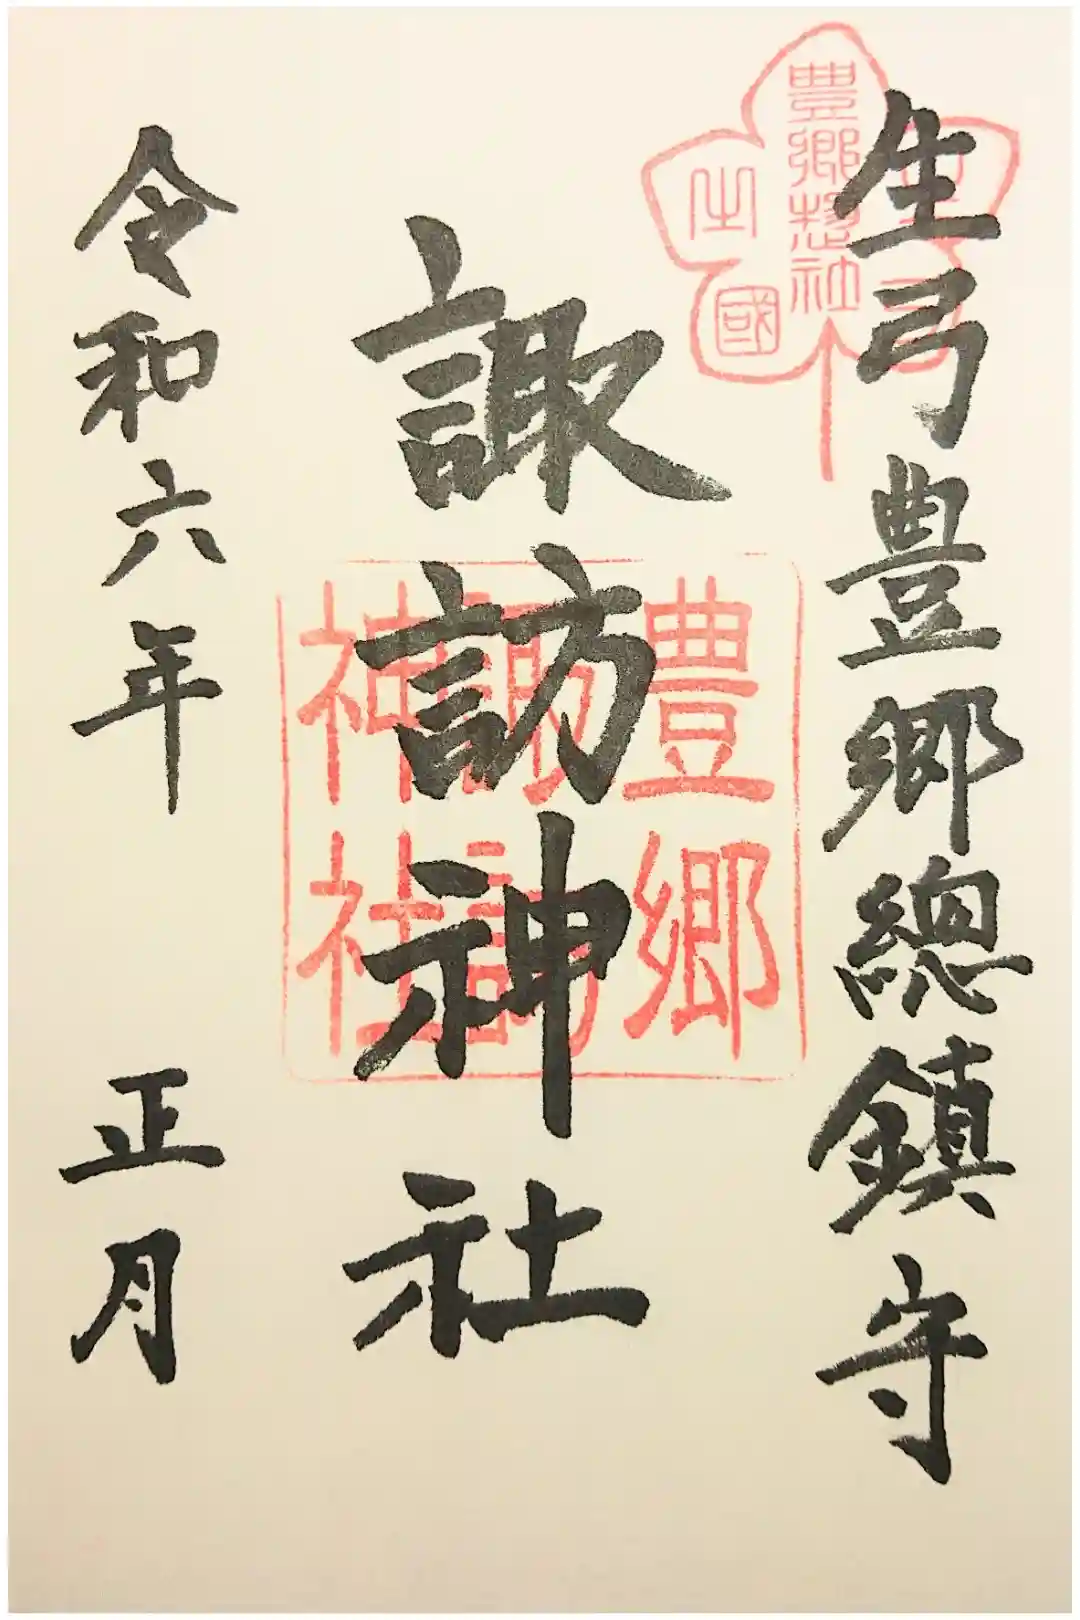 生弓豊郷總鎮守
諏訪神社
令和六年 正月
豊郷総社
之國
豊郷
諏訪
神社